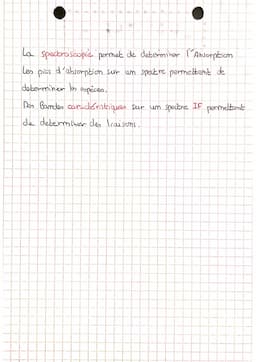 La spectroscopie permet de déterminer l'Absorption
Les pics d'absorption sur um spectre permettant de
déterminer les espèces.
Des Bandes caractéristiques sur um spectre IF permettent
de déterminer des liaisons.